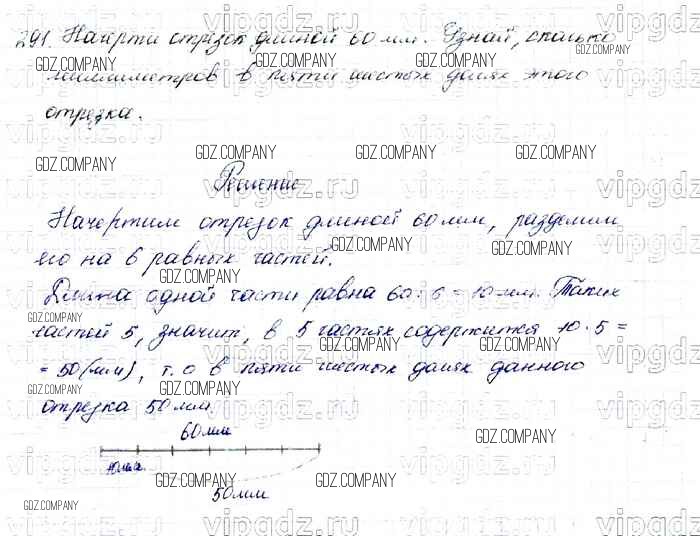 291. Начерти отрезок длиной 60 мм. Узнай, сколько
миллиметров в пяти шестых долях этого
отрезка.
Решение
Начертим отрезок длиной 60 мм, разделим
его на 6 равных частей.
Длина одной части равна 60 : 6 = 10 мм. Таких
частей 5, значит, в 5 частях содержится 10 · 5 =
= 50 (мм), т.о в пяти шестых долях данного
отрезка 50 мм.
60 мм
10 мм
50 мм
vipgdz.ru
GDZ.COMPANY